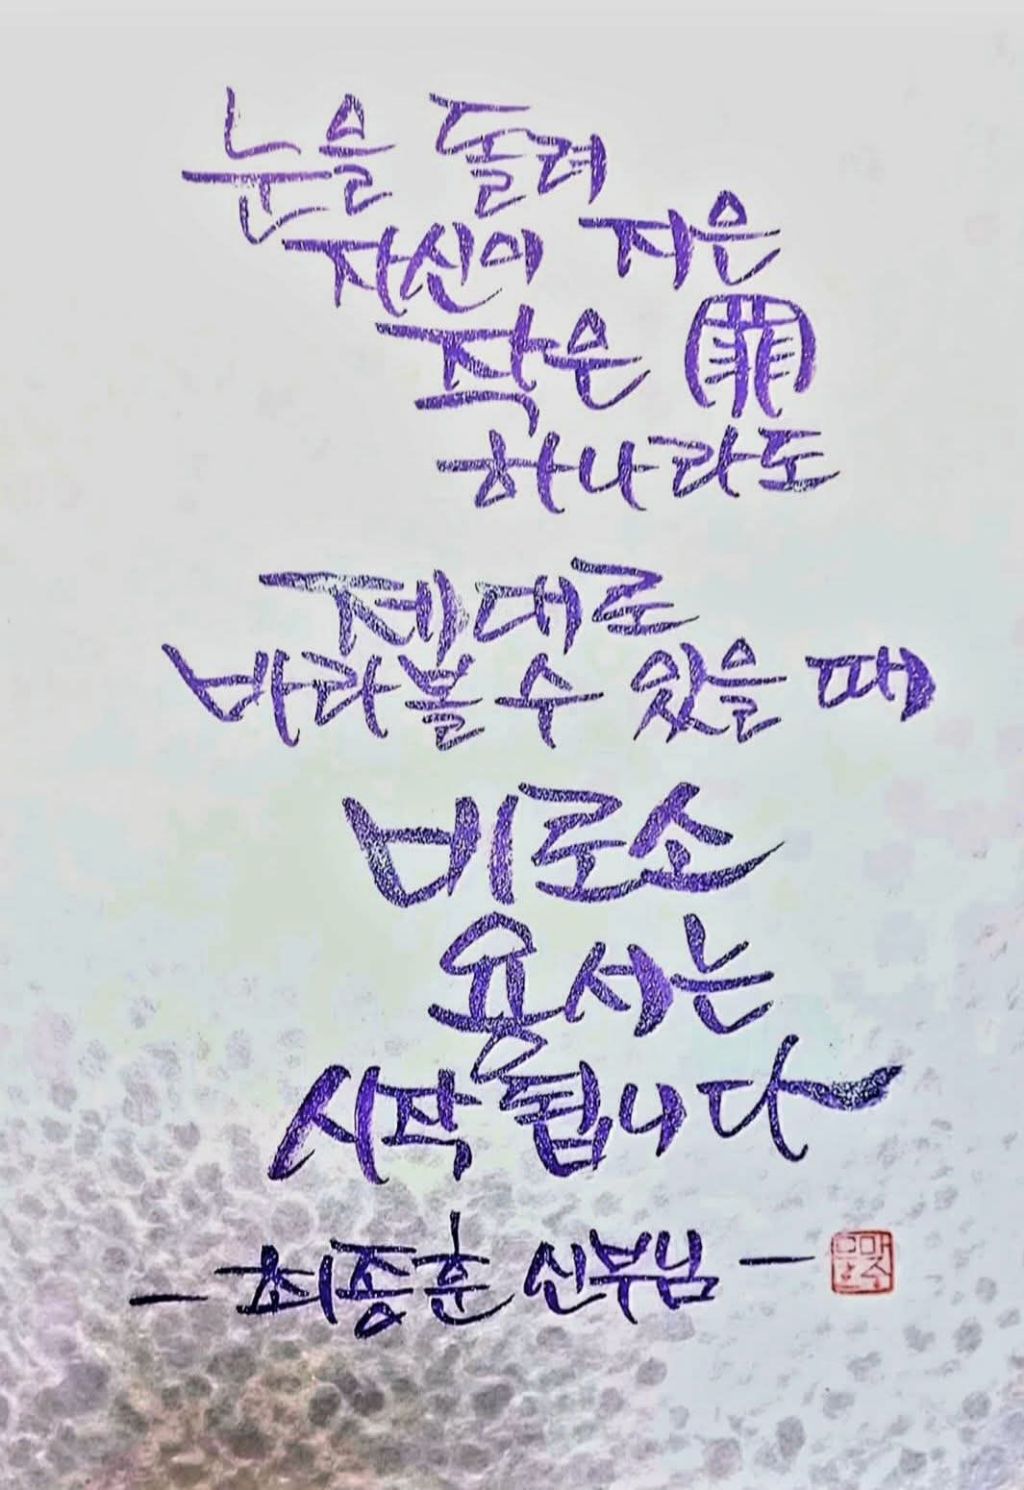 눈을 돌려
자신이 지은
작은 罪
하나라도
제대로
바라볼 수 있을 때
비로소
요서는
시작됩니다
- 최종훈 신부님 -